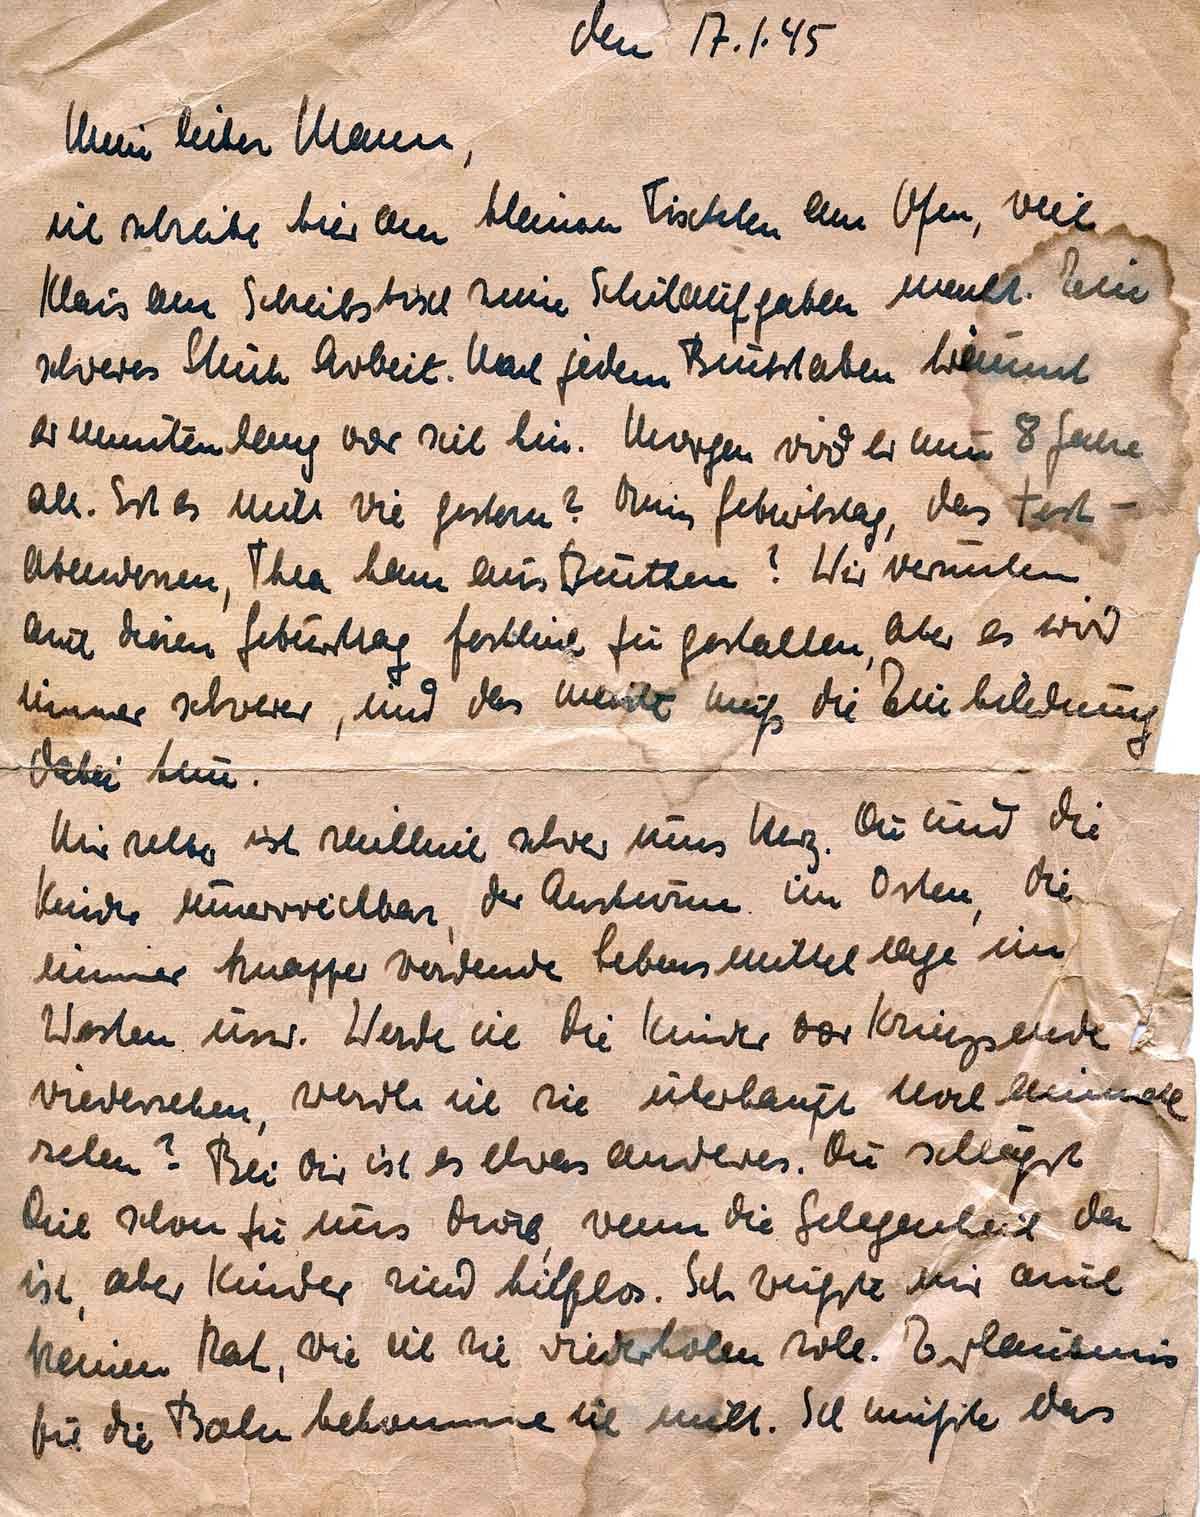 den 17.1.45
Mein lieber Mann,
ich schreibe hier am kleinen Tischchen am Ofen, weil
Klaus am Schreibtisch seine Schulaufgaben macht. Ein
schweres Stück Arbeit. Nach jedem Buchstaben träumt
er minutenlang vor sich hin. Morgen wird er nun 8 Jahre
alt. Ist es nicht wie gestern? Dein Geburtstag, das Fest-
abendessen, Thea kam aus Beuthen? Wir versuchen
auch diesen Geburtstag festlich zu gestalten, aber es wird
immer schwerer, und das meiste muß die Einbildung
dabei tun.
Mir selber ist ziemlich schwer ums Herz. Du und die
Kinder unerreichbar, der Ansturm im Osten, die
immer knapper werdende Lebensmittellage im
Westen usw. Werde ich die Kinder vor Kriegsende
wiedersehen, werde ich sie überhaupt noch einmal
sehen? Bei Dir ist es etwas anderes. Du schlägst
Dich schon zu uns durch, wenn die Gelegenheit da
ist, aber Kinder sind hilflos. Ich wüsste mir auch
keinen Rat, wie ich sie wiederholen soll. Erlaubnis
für die Bahn bekomme ich nicht. Ich müßte das